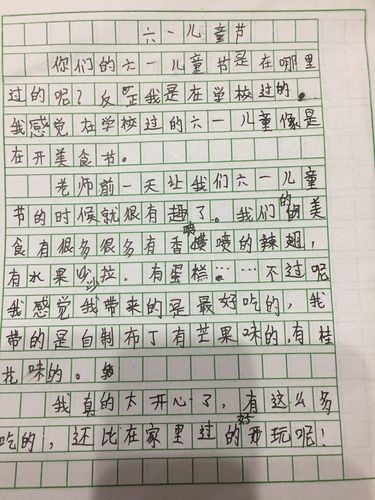 六一儿童节
你们的六一儿童节是在哪里
过的呢？反正我是在学校过的。
我感觉在学校过的六一儿童像是
在开美食节。
老师前一天让我们六一儿童
节的时候就很有趣了。我们的美
食有很多很多有香喷喷的辣翅，
有水果沙拉．有蛋糕……不过呢
我感觉我带来的是最好吃的，我
带的是自制布丁有芒果味的，有桂
花味的。
我真的太开心了，有这么多
吃的，还比在家里过的好玩呢！